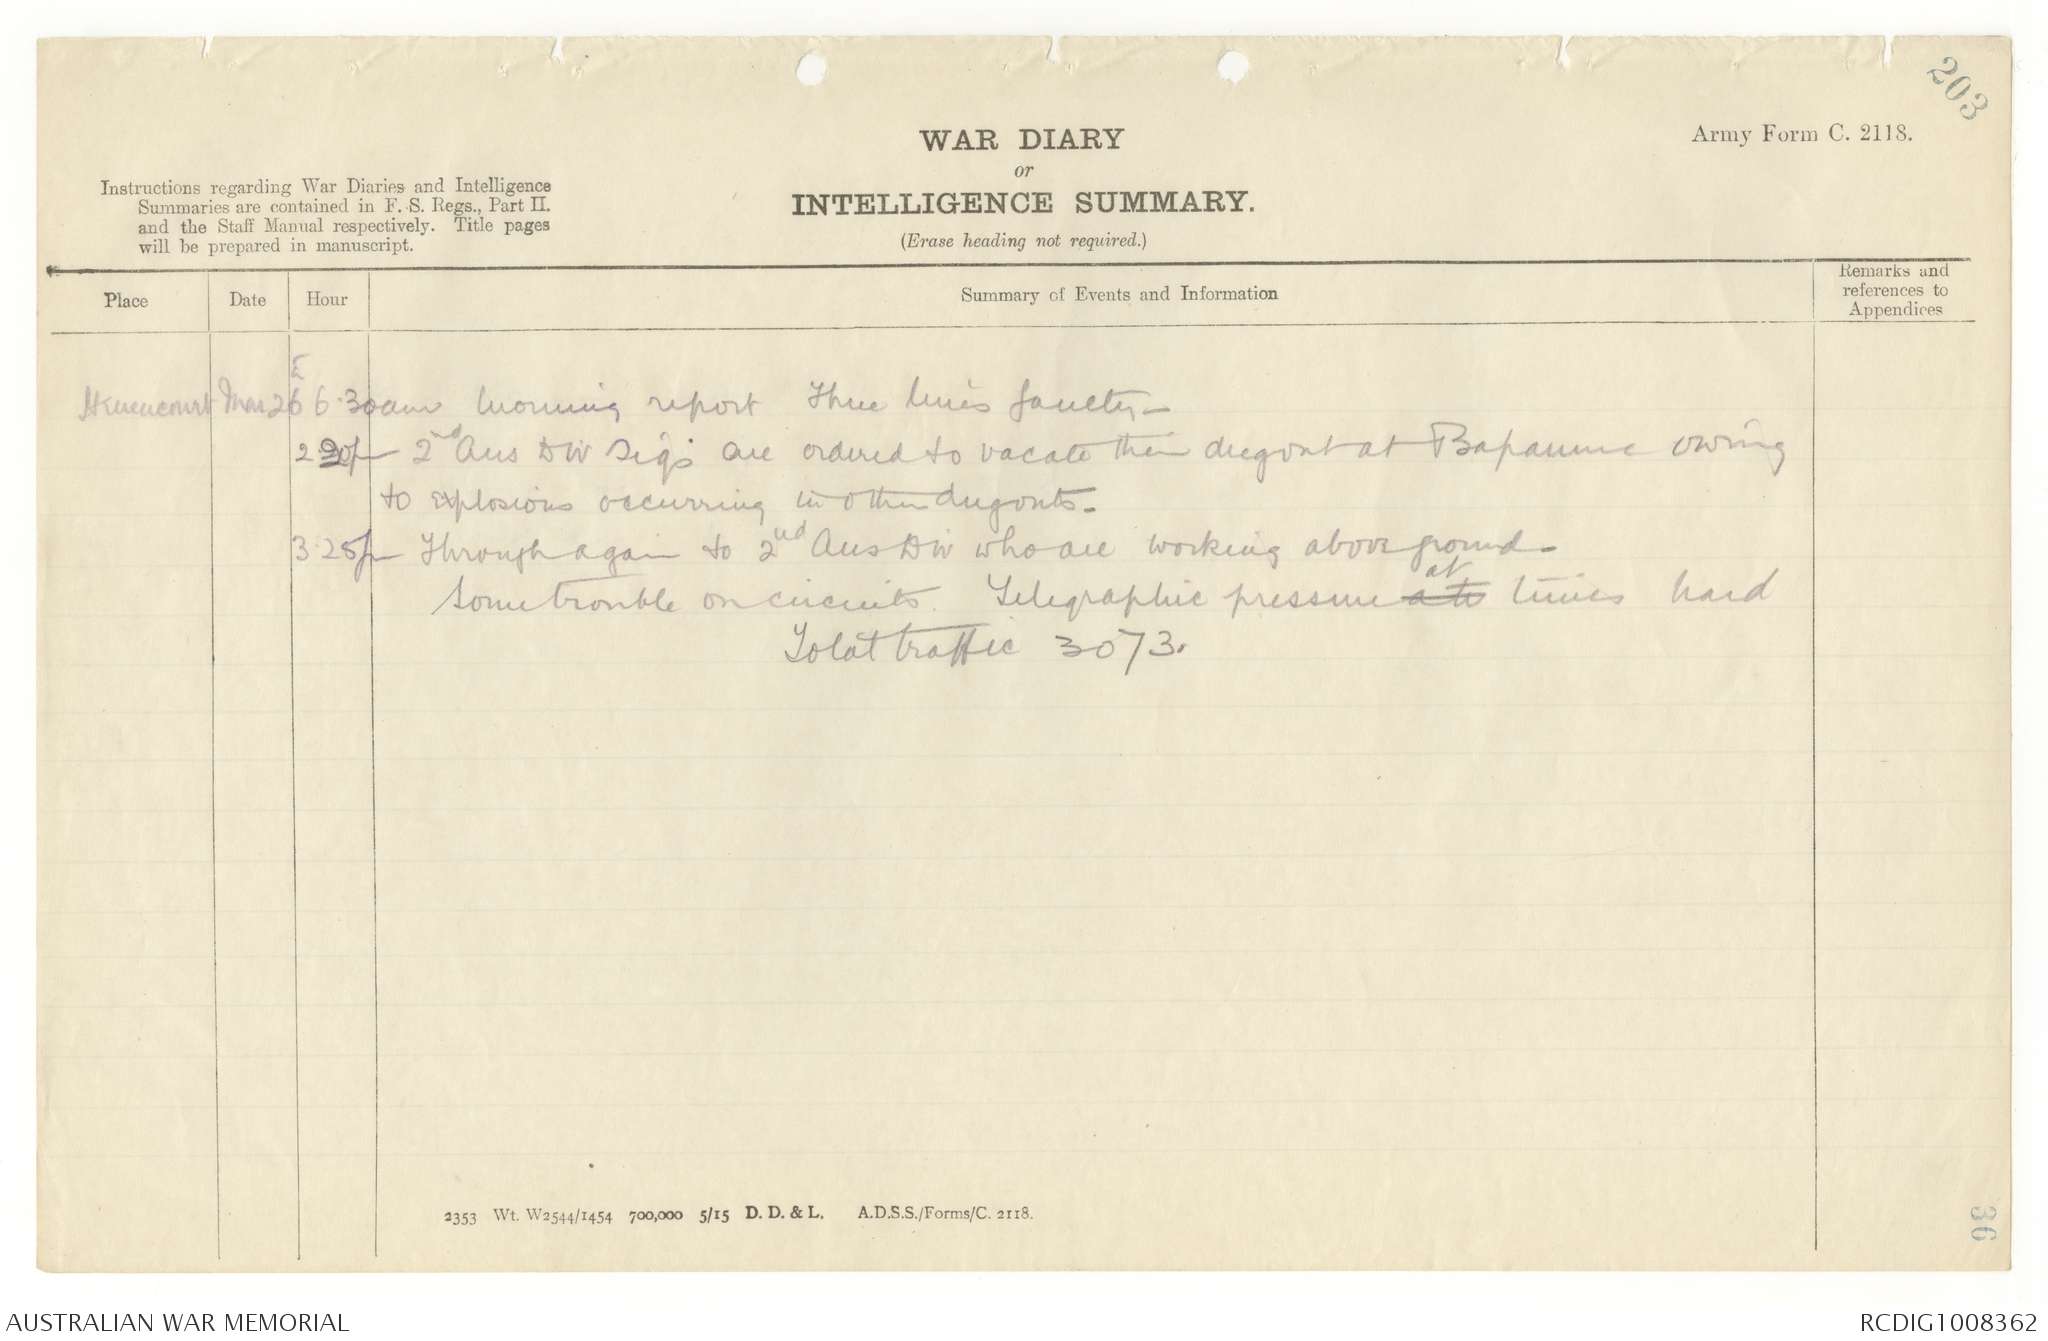 203
Army Form C. 2118.
WAR DIARY
or
INTELLIGENCE SUMMARY.
(Erase heading not required.)
Instructions regarding War Diaries and Intelligence
Summaries are contained in F. S. Regs., Part II.
and the Staff Manual respectively. Title pages
will be prepared in manuscript.
Place
Date
Hour
Summary of Events and Information
Remarks and
references to
Appendices
Henencourt Mar 26 6.30am Morning report Three lines faulty -
2.20p 2nd Aus Div Sigs are ordered to vacate their dugout at Bapaume owing
to explosions occurring in other dugouts -
3.25p Through again to 2nd Aus Div who are working above ground -
Some trouble on circuits. Telegraphic pressure at times hard
Total traffic 3073.
2353 Wt. W2544/1454 700,000 5/15 D. D. & L. A.D.S.S./Forms/C. 2118.
36
AUSTRALIAN WAR MEMORIAL
RCDIG1008362